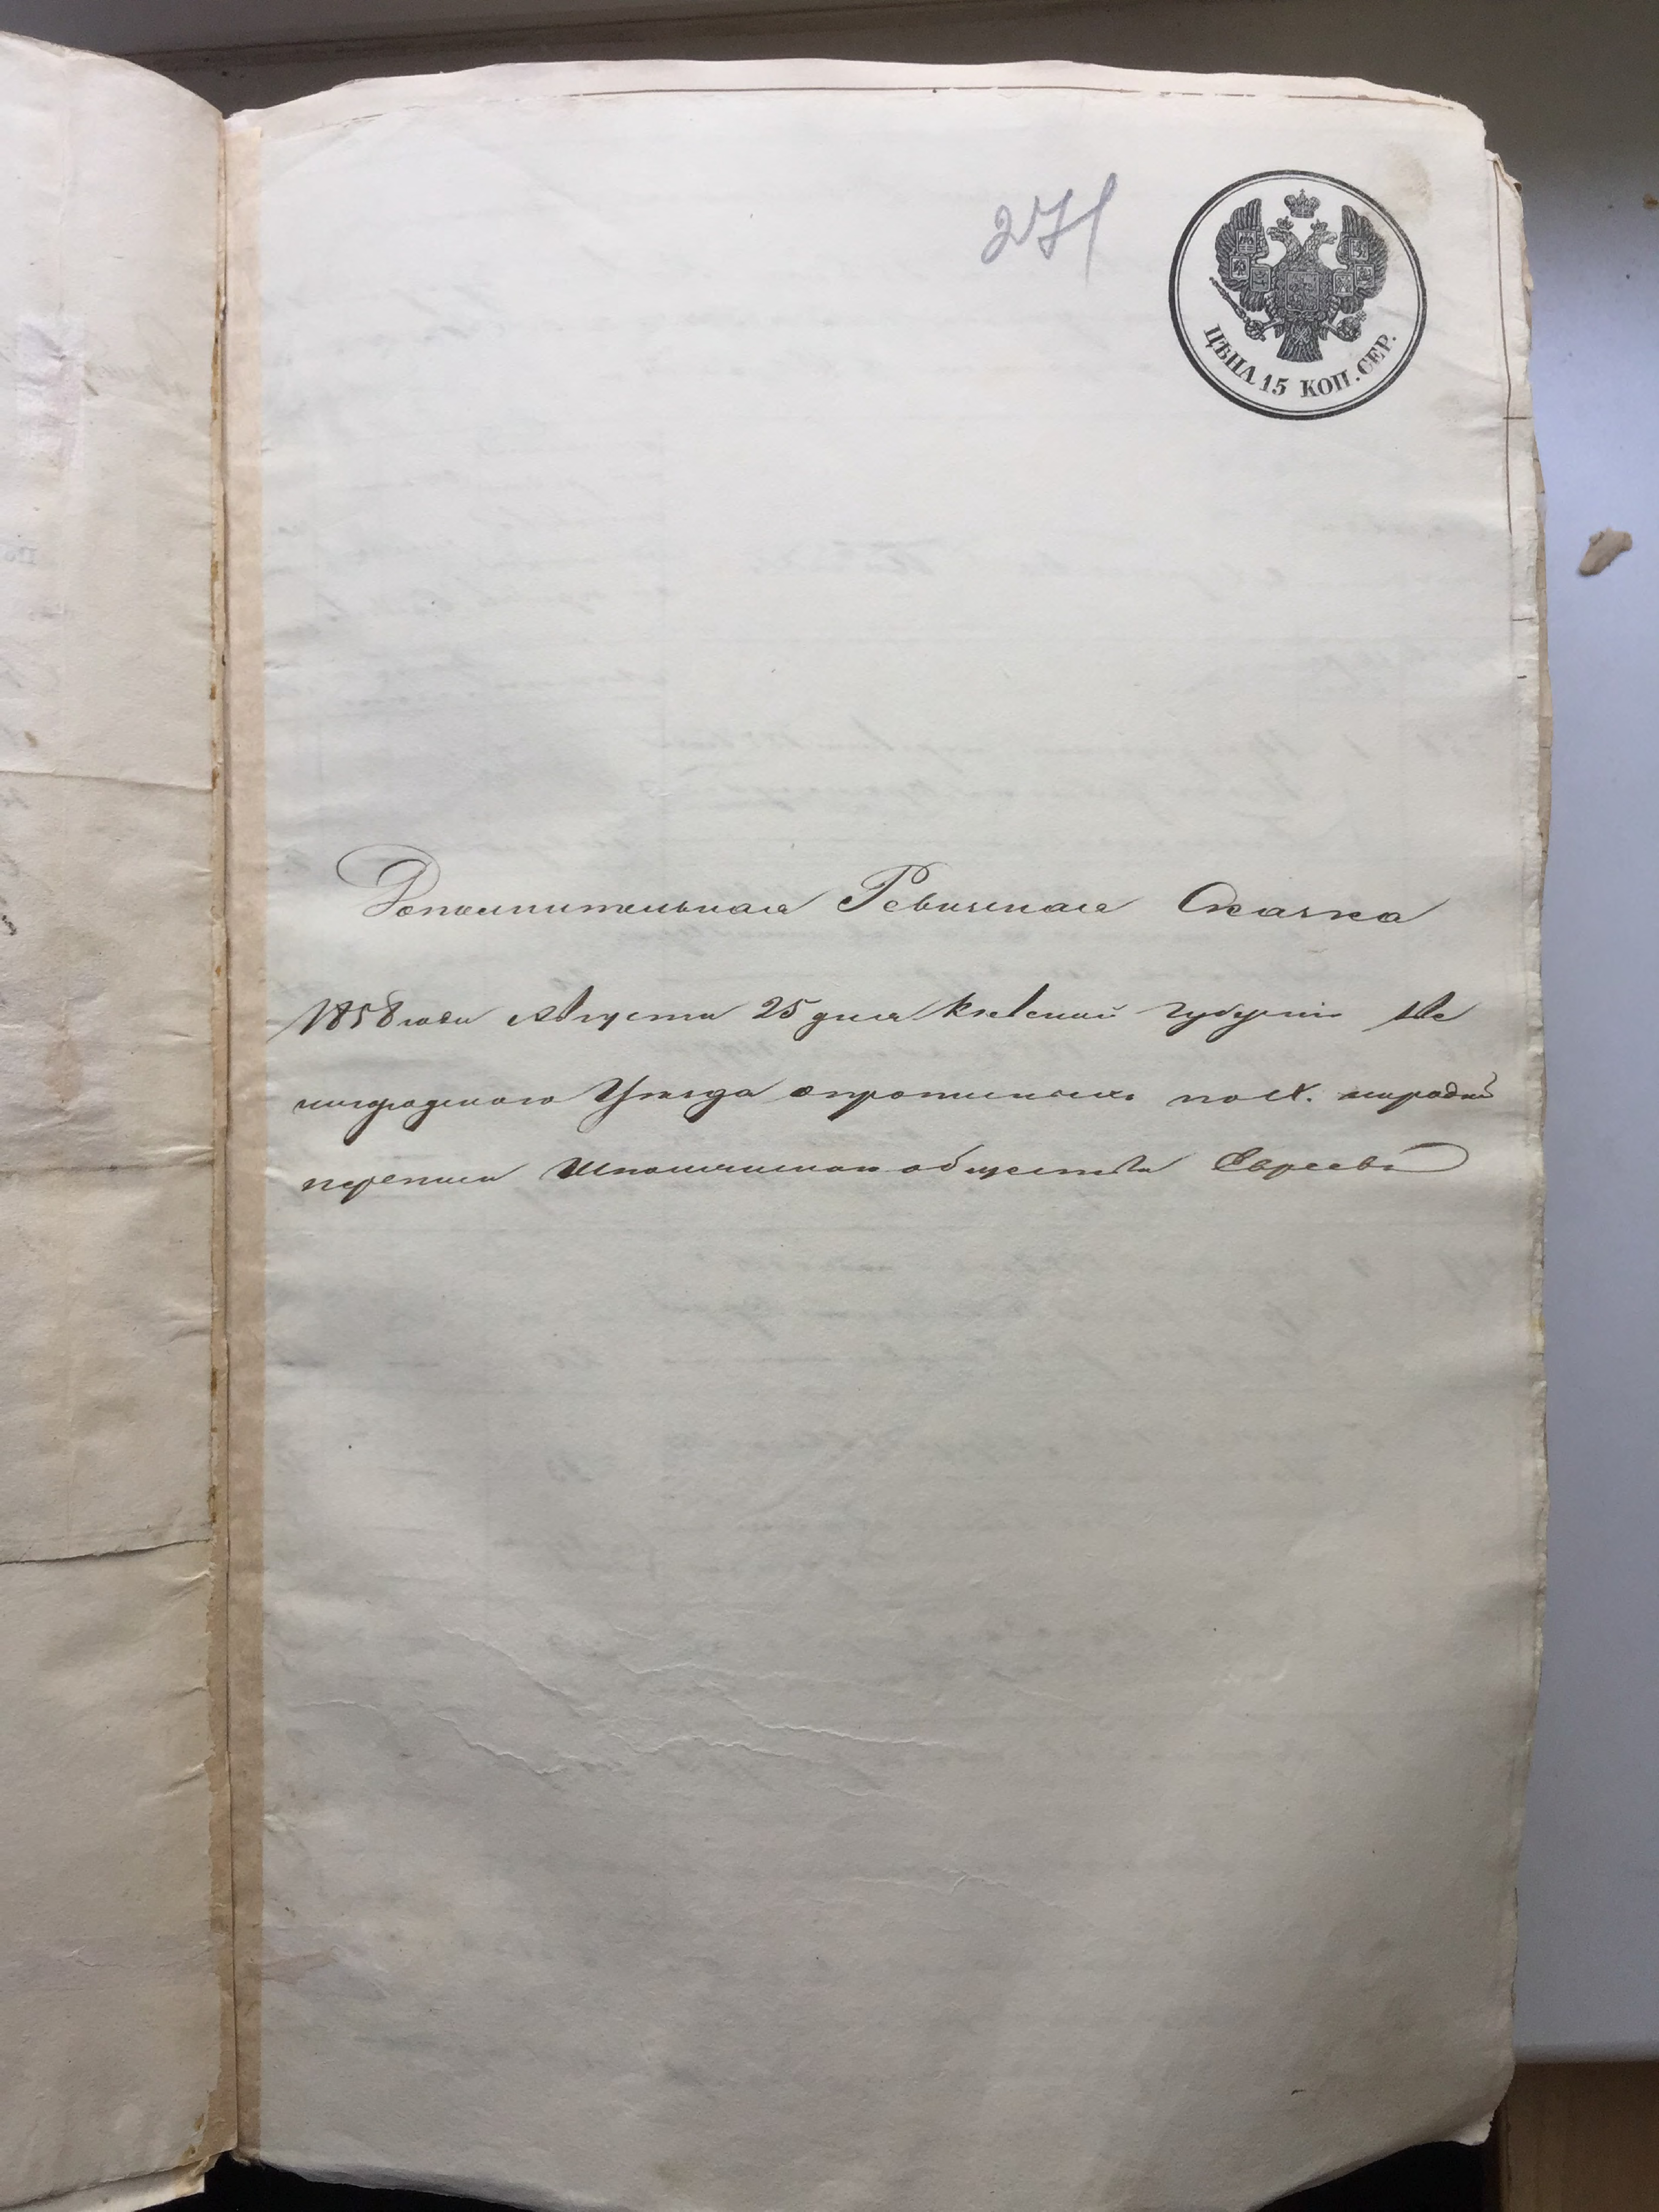 271
ЦѢНА 15 КОП. СЕР.
Дополнительная Ревизская Сказка
1858 года Августа 25 дня Киевской губерніи Зве
нигородского Уѣзда о пропиcныхъ по X. народной
переписи Шполянского общества Евреевъ